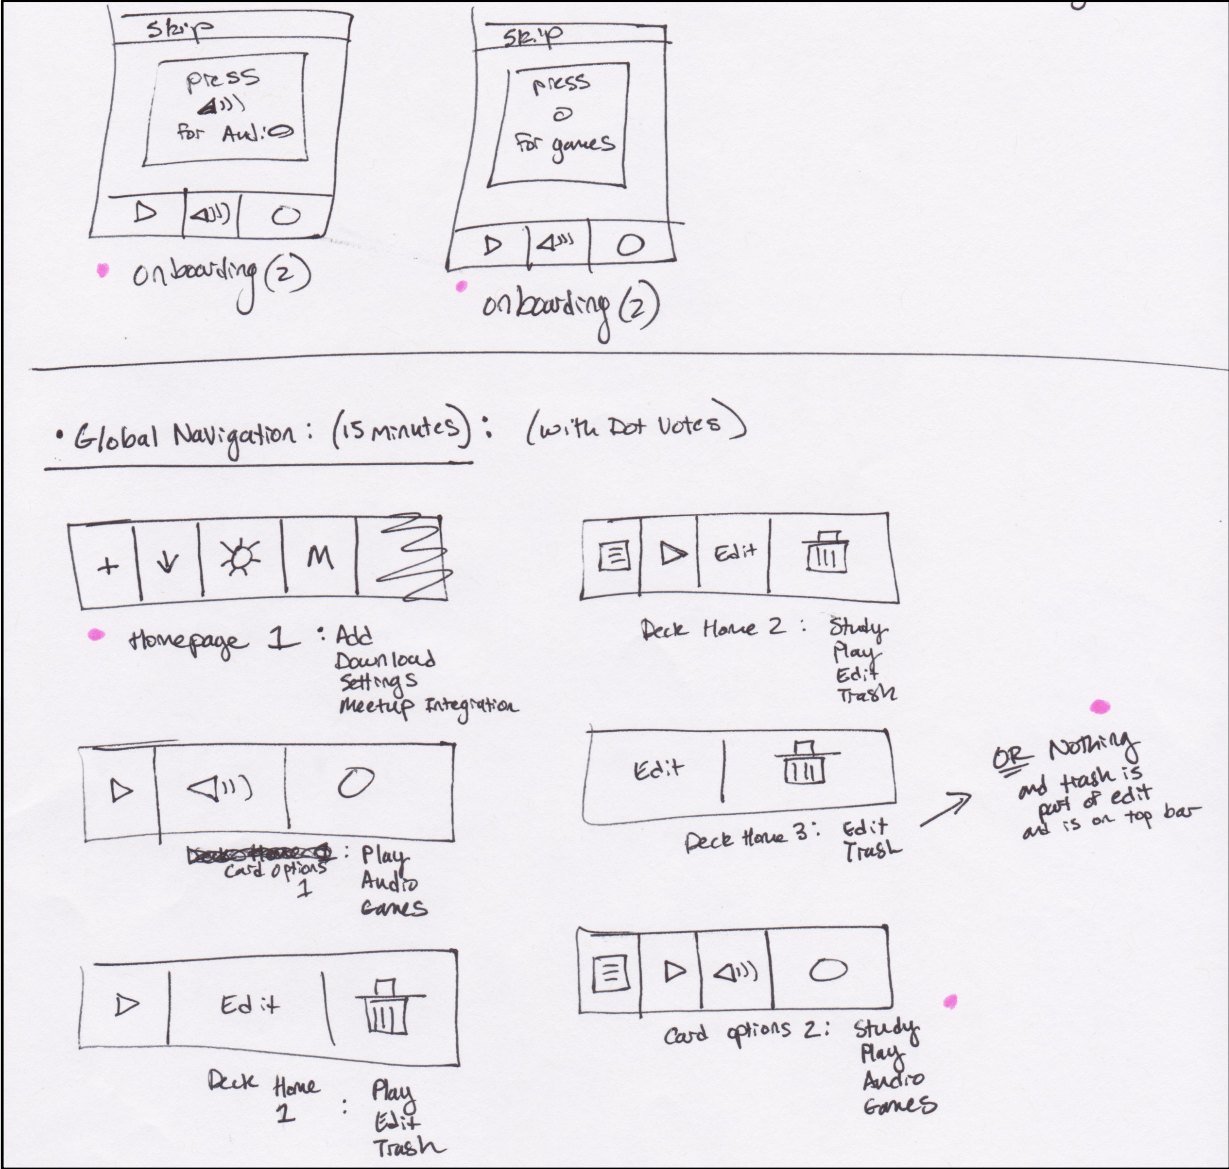 Skip
press
for Audio
onboarding (2)
Skip
press
for games
onboarding (2)
• Global Navigation: (15 minutes): (with Dot Votes)
+
M
Homepage 1 : Add
Download
Settings
Meetup Integration
Edit
Deck Home 2 : Study
Play
Edit
Trash
Card options 1 : Play
Audio
Games
Edit
Deck Home 3 : Edit
Trash
OR Nothing
and trash is
part of edit
and is on top bar
Edit
Deck Home 1 : Play
Edit
Trash
Card options 2 : Study
Play
Audio
Games